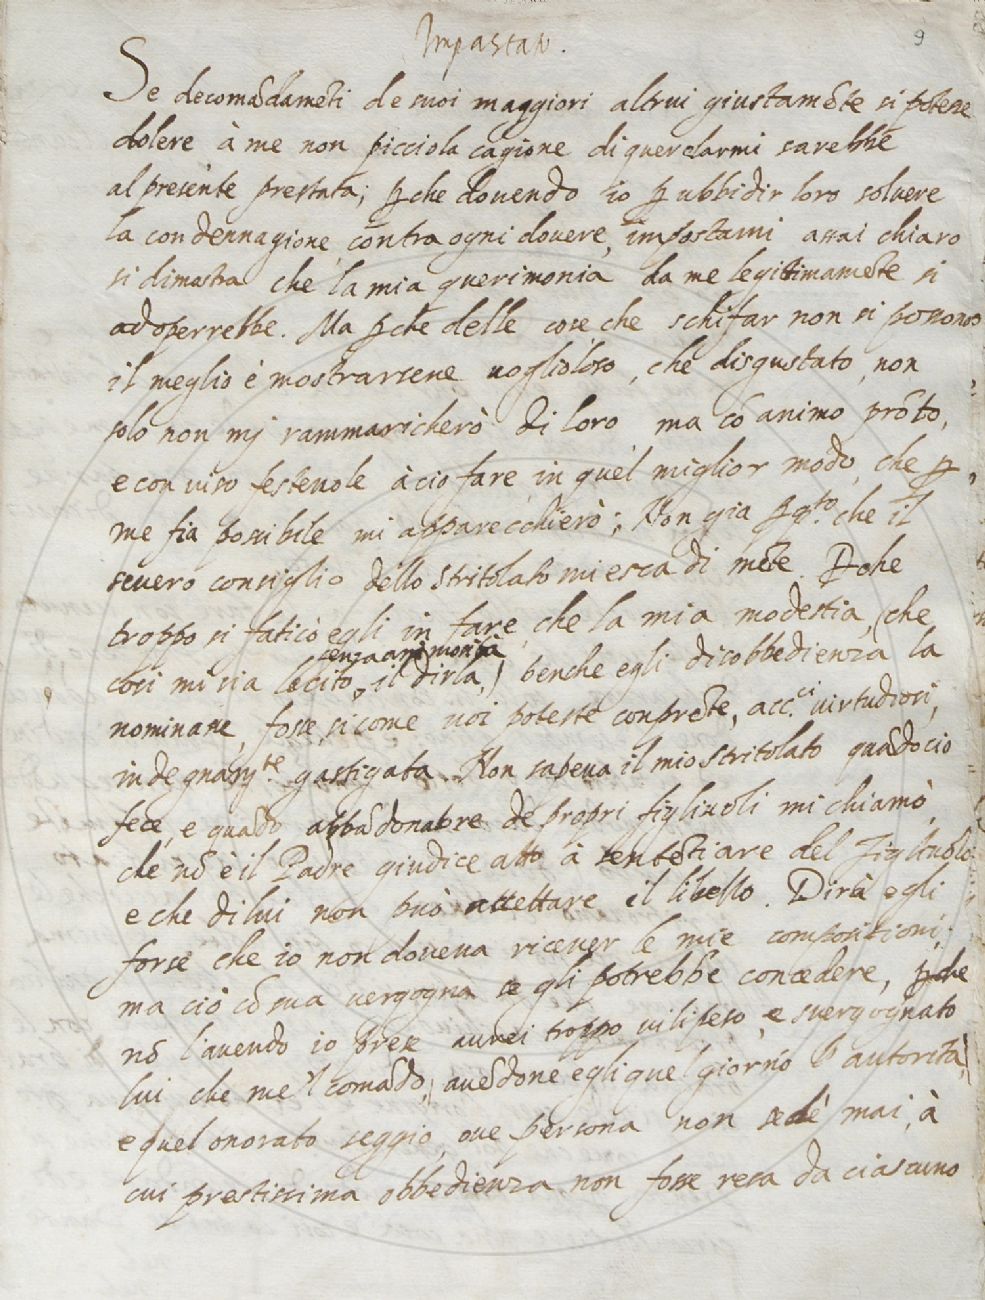 Impastato.
9
Se decomādamēti de suoi maggiori altrui giustamēte si potesse
dolere à me non picciola cagione di querelarmi sarebbe
al presente prestata; ꝑche dovendo io ꝑ ubbidir loro solvere
la condennagione, contra ogni dovere, impostami assai chiaro
si dimostra che la mia querimonia da me legitimamēte si
adoperrebbe. Ma ꝑche delle cose che schifar non si possono
il meglio è mostrarsene voglioloso, che disgustato, non
solo non mj rammaricherò di loro, ma cō animo prōto,
e con viso festevole à ciò fare, in quel miglior modo, che ꝑ
me fia possibile mi apparecchierò; Non gia ꝑ qto. che il
severo consiglio dello Stritolato mi esca di mēte. Ꝑche
troppo si faticò egli in fare, che la mia modestia, (che
senza animosità
così mi sia lecito, il dirla,) benche egli disobbedienza la
nominasse, fosse, sicome voi poteste conprēte, acc.ci virtudiosi,
indegnamte. gastigata. Non sapeva il mio Stritolato quādo ciò
fece, e quādo abbādonatore de propri figliuoli mi chiamò,
che nō è il Padre giudice atto à sentētiare del figliuolo
e che di lui non può accettare il libello. Dirà egli
forse che io non doveva ricever le mie compositioni;
ma ciò cō sua vergogna se gli potrebbe concedere, ꝑche
nō l'avendo io prese avrei troppo vilipeso, e svergognato
lui che me 'l comādo, avēdone egli quel giorno l'autorità,
e quel onorato seggio, ove persona non sedè mai, à
cui prestissima obbedienza non fosse resa da ciascuno